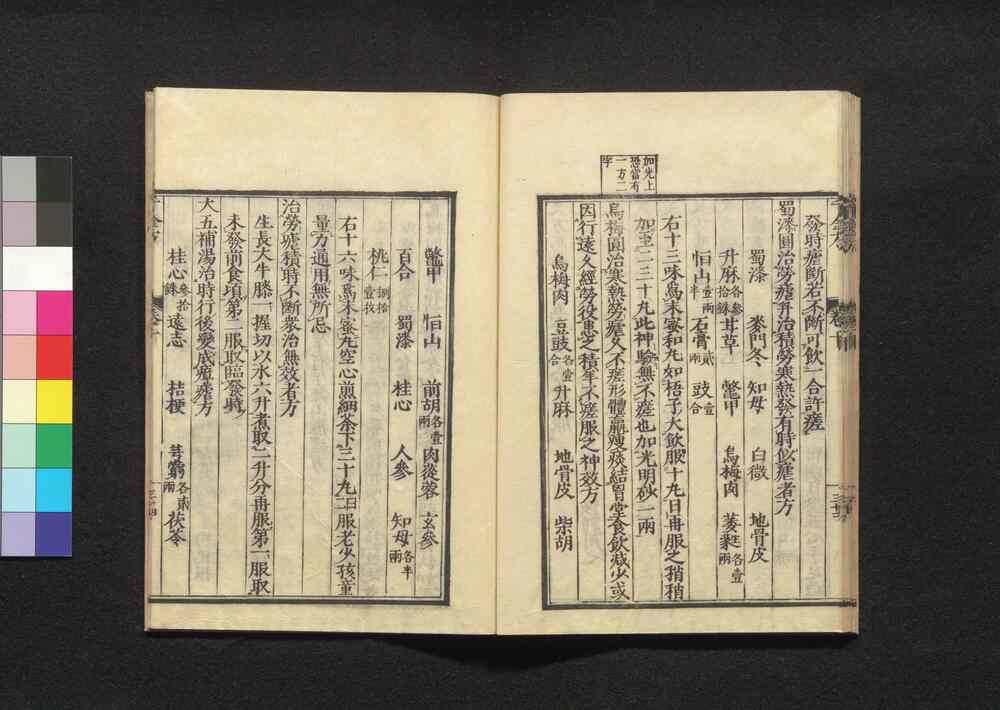 加光上
恐當有
一方二
字
發時瘧斷若不斷可飲一合許瘥
蜀漆圓治勞瘧并治積勞寒熱發有時似瘧者方
蜀漆 麥門冬 知母 白微 地骨皮
升麻各参拾銖 甘草 鼈甲 烏梅肉 萎蕤各壹兩
恒山壹兩半 石膏貳兩 豉壹合
右十三味爲末蜜和丸如梧子大飲服十丸日再服之稍稍
加至二三十丸此神驗無不瘥也加光明砂一兩
烏梅圓治寒熱勞瘧久不瘥形體羸瘦痰結胷堂食飲減少或
因行遠久經勞役患之積年不瘥服之神效方
烏梅肉 豆豉各壹合 升麻 地骨皮 柴胡
鼈甲 恒山 前胡各壹兩 肉蓯蓉 玄參
百合 蜀漆 桂心 人參 知母各半兩
桃仁捌拾壹枚
右十六味爲末蜜丸空心煎細茶下三十丸日二服老少孩童
量力通用無所忌
治勞瘧積時不斷衆治無效者方
生長大牛膝一握切以水六升煮取二升分再服第一服取
未發前食頃第二服取臨發時
大五補湯治時行後變成瘧瘴方
桂心参拾銖 遠志 桔梗 芎藭各貳兩 茯苓